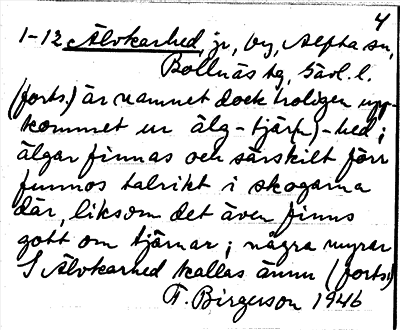 4
1-12 Älvkarhed, gd, by, Alfta sn,
Bollnäs tg, Gävl. l.
(forts.) är namnet dock troligen upp-
kommet ur älg-tjärn-hed;
älgar finnas och särskilt förr
funnos talrikt i skogarna
där, liksom det även finns
gott om tjärnar; några myrar
I Älvkarhed kallas ännu (forts.)
F. Birgerson 1946